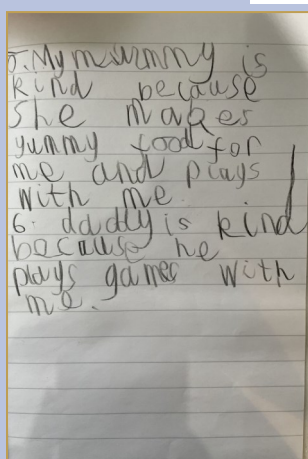 5. My mummy is
kind because
she makes
yummy food for
me and plays
with me.
6. daddy is kind
because he
plays games with
me.